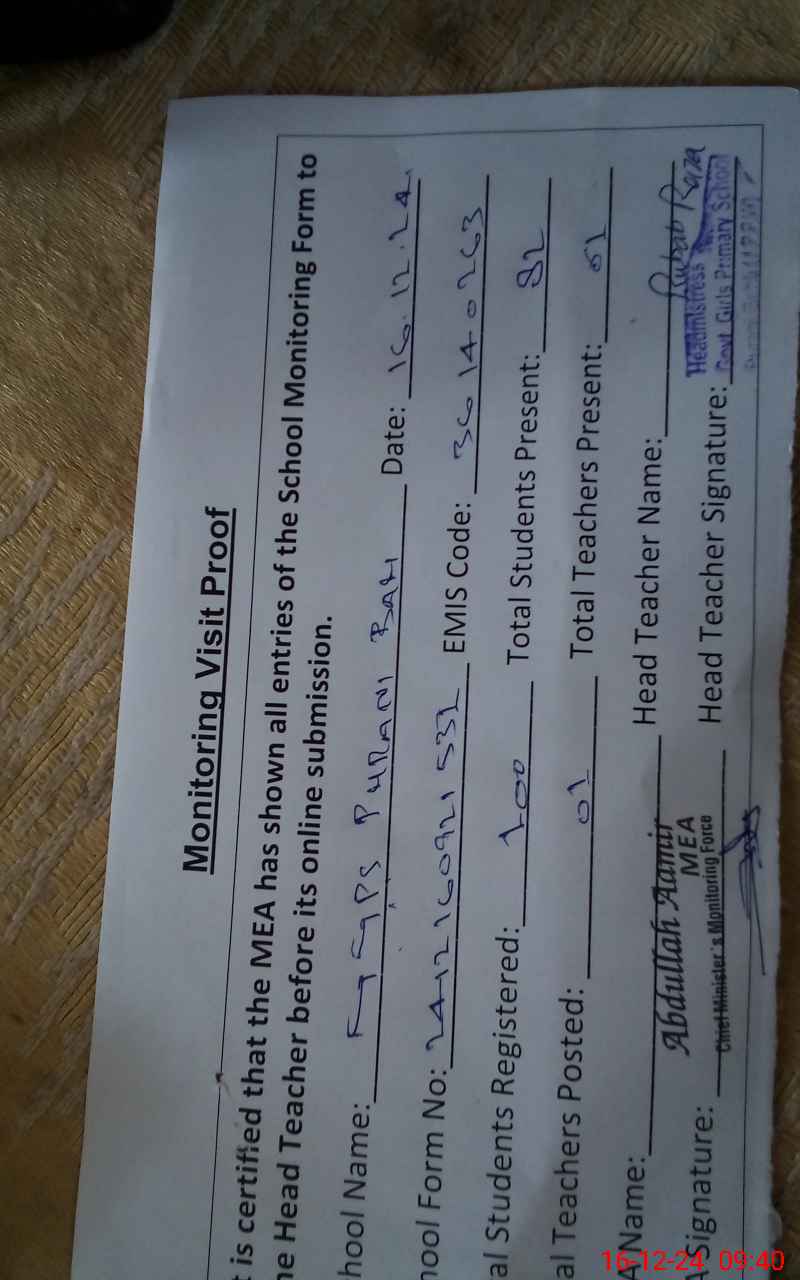 Monitoring Visit Proof
t is certified that the MEA has shown all entries of the School Monitoring Form to
he Head Teacher before its online submission.
hool Name: GGPS PURANI BAH Date: 16.12.24
hool Form No: 2412160921532 EMIS Code: 36140263
al Students Registered: 100 Total Students Present: 82
al Teachers Posted: 01 Total Teachers Present: 01
A Name: Abdullah Aamir Head Teacher Name: Rubab Raza
MEA
Chief Minister's Monitoring Force
A Signature: Head Teacher Signature:
Headmistress
Govt. Girls Primary School
16-12-24 09:40